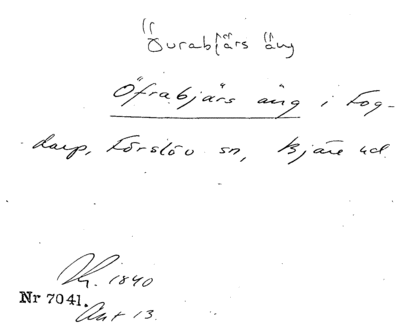 Övrabjärs äng
Öfrabjärs äng i Fog-
darp, Förslöv sn, Bjäre hd
Nr 7041.
1840
Akt 13.